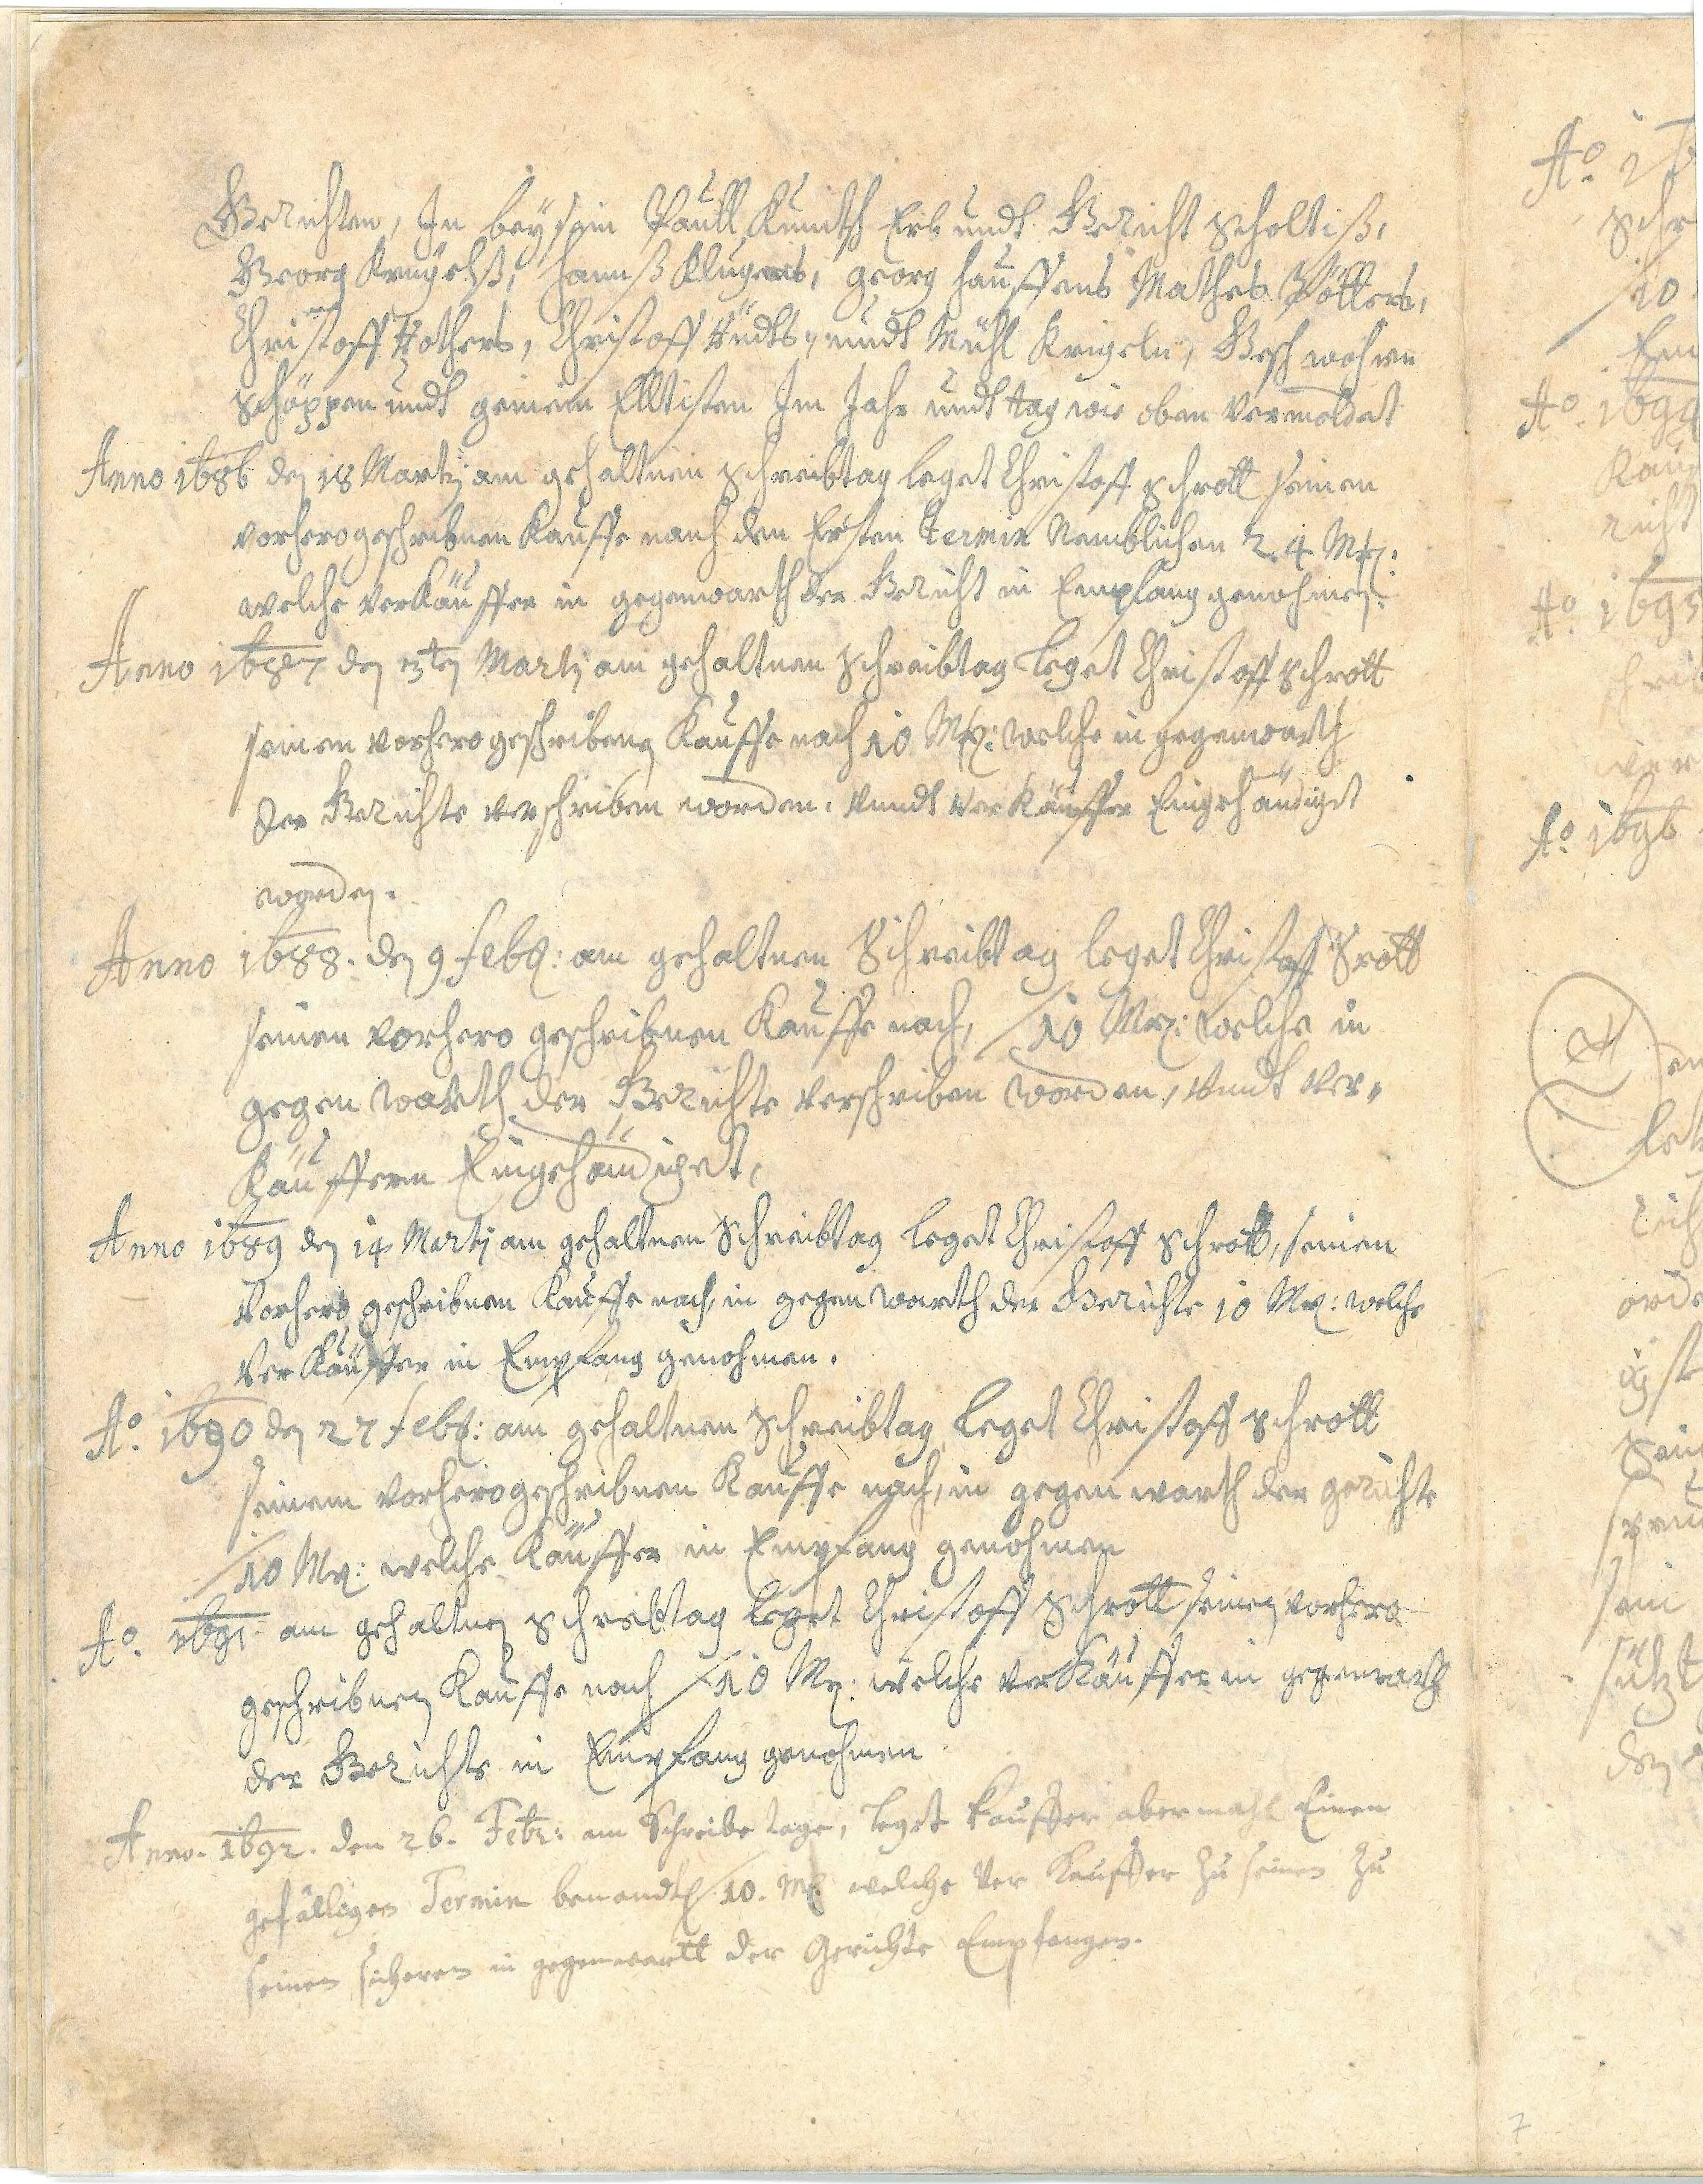 Gerichten, In beysein Paull Kunith Erb undt Gericht scholtiß,
Georg Krugelß, hannß Klugens, georg hauffens Mathes Pötters,
Christoff Hothers, Christoff undt Mühl Krigeln, Geschwohren
schöppen undt gemein Elltisten Im Jahr undt tag wie oben Vermeldet
Anno 1686 den 18 Martij am gehaltnen schreibtag leget Christoff schrott seinen
vorhero geschribnen Kauffe nach den Ersten Termin Nemblichen 24 Mrk:
welche verkäuffer in gegenwarth der Gericht in Empfang genohmen.
Anno 1687 den 13ten Martij am gehaltnen schreibtag leget Christoff schrott
seinen vorhero geschribenen Kauffe nach 10 Mrk: welche in gegenwarth
der Gerichte verschriben worden. vundt verkäuffer Eingehändiget
worden.
Anno 1688. den 9 febr: am gehaltnen Schreibtag leget Christoff Srott
seinen vorhero geschribnen Kauffe nach, 10 Mrk: welche in
gegen warth der Gerichte verschriben worden, vundt ver-
käuffern Eingehändiget,
Anno 1689 den 14 Martij am gehaltnen schreibtag leget Christoff schrott, seinen
vorhero geschribnen Kauffe nach, in gegen warth der Gerichte 10 Mrk: welche
verkäuffer in Empfang genohmen.
Ao. 1690 den 27 febr: am gehaltnen schreibtag leget Christoff schrott
seinem vorhero geschribnen Kauffe nach, in gegen warth der gerichte
10 Mrk: welche Käuffer in Empfang genohmen
Ao. 1691 am gehaltnen schreibtag leget Christoff schrott seinen vorhero
geschribnen Kauffe nach 10 Mrk: welche verkäuffer in gegenwarth
der Gerichte in Empfang genohmen
Anno. 1692. den 26. Febr: am Schreibe tage, leget Kauffer abermahl Einen
gefälligen Termin 10. Mrk welche Ver Kauffer zu seinen zu
seinen sicheren in gegenwartt der Gerichte Empfangen.
Ao. 16
schr
10
Ao. 1694
Kauf
richt
Ao. 1695
Ao. 1696
7